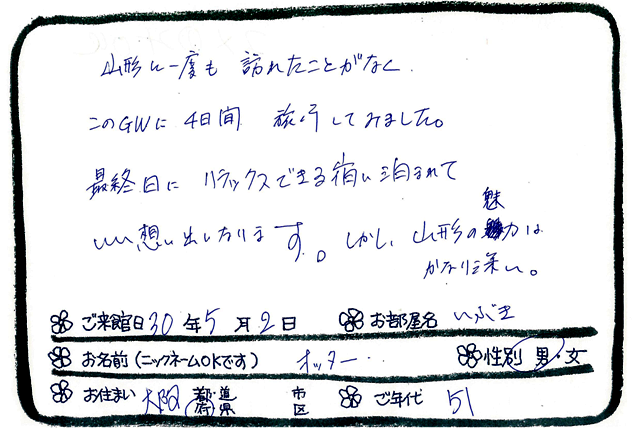 山形に一度も 訪れたことがなく
このGWに 4日間 旅行してみました。
最終日に リラックスできる宿に泊まれて
いい想い出になります。しかし、山形の魅力は
かなり深い。
ご来館日 30年5月2日 お部屋名 いぶき
お名前(ニックネームOKです) オッター・・ 性別 男・女
お住まい 大阪 都・道府県 市区 ご年代 51